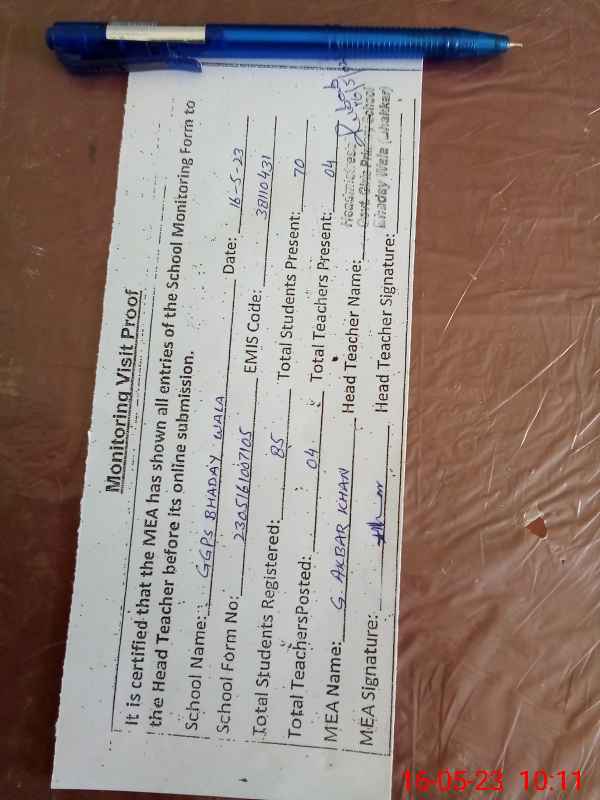 Monitoring Visit Proof
It is certified that the MEA has shown all entries of the School Monitoring Form to
the Head Teacher before its online submission.
School Name: GGPS BHADAY WALA Date: 16-5-23
School Form No: 2305161007105 EMIS Code: 38110431
Total Students Registered: 85 Total Students Present: 70
Total TeachersPosted: 04 Total Teachers Present: 04
MEA Name: G. AKBAR KHAN Head Teacher Name:
MEA Signature: Head Teacher Signature:
Headmistress
Govt. Girls Primary School
Bhaday Wala (Bhakkar)
16-05-23 10:11